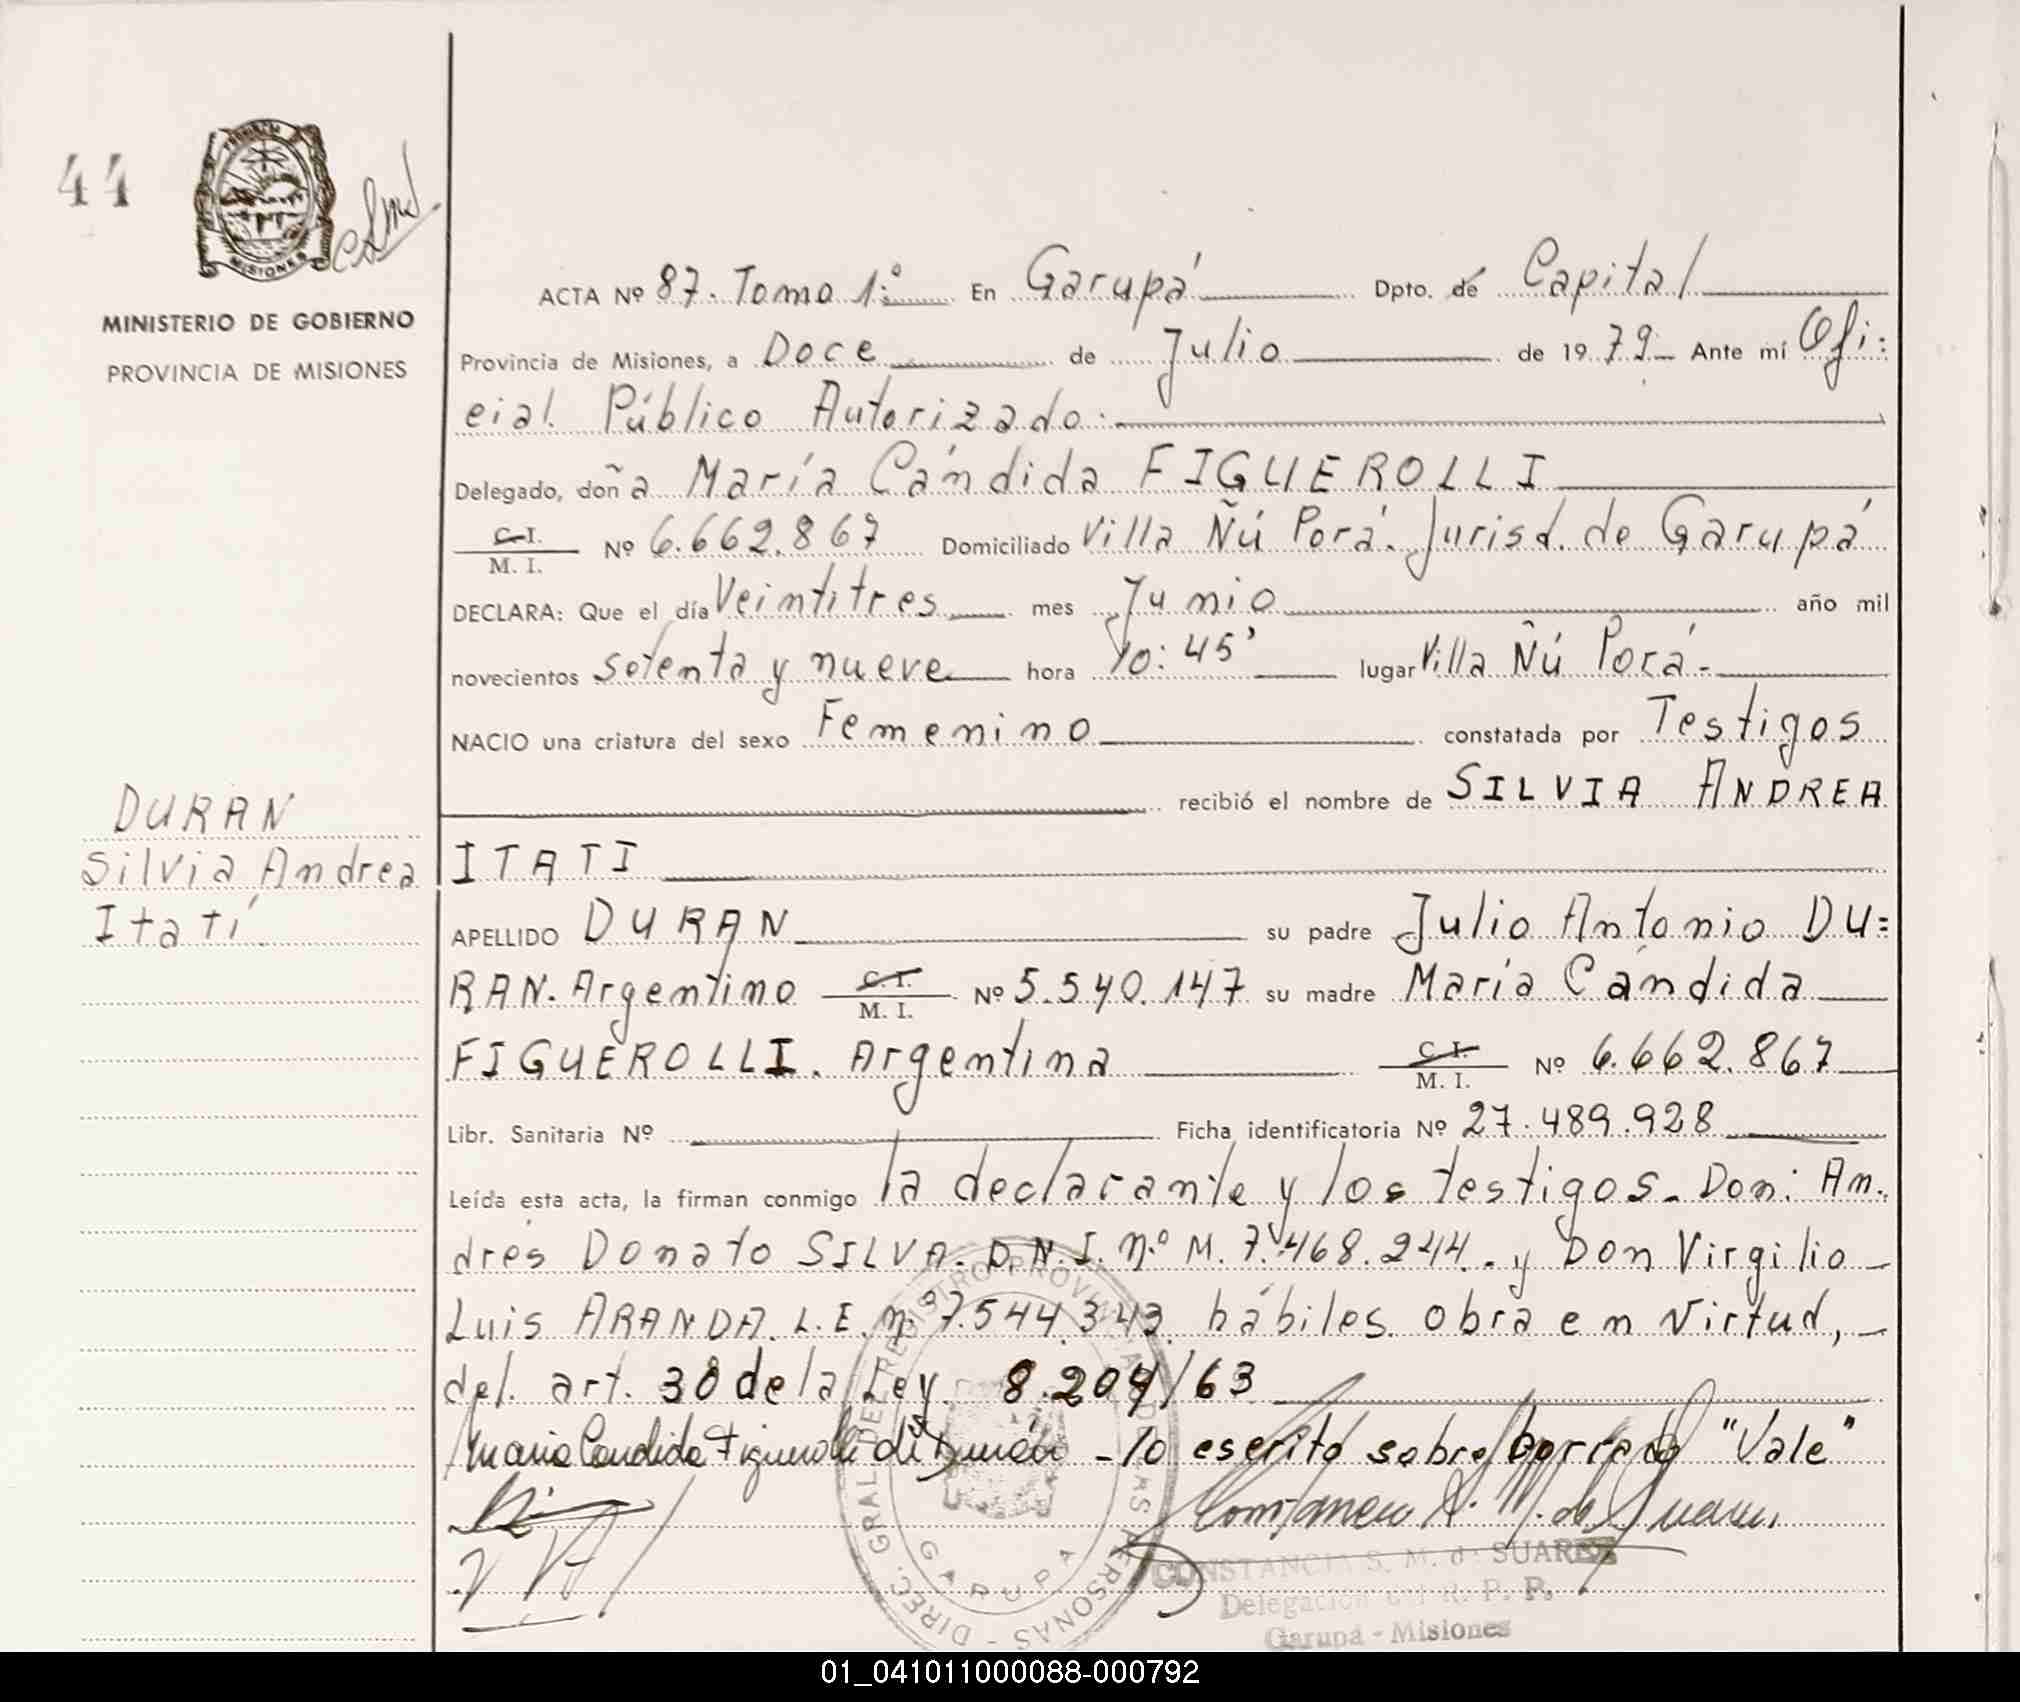 44
PROVINCIA
MISIONES
MINISTERIO DE GOBIERNO
PROVINCIA DE MISIONES
ACTA Nº 87. Tomo 1º. En Garupá Dpto. de Capital
Provincia de Misiones, a Doce de Julio de 1979 Ante mí Ofi=
cial Público Autorizado.
Delegado, doña María Cándida FIGUEROLLI
C.I. M. I. Nº 6.662.867 Domiciliado Villa Ñú Porá. Jurisd. de Garupá
DECLARA: Que el día Veintitres mes Junio año mil
novecientos setenta y nueve hora 10:45' lugar Villa Ñú Porá.-
NACIO una criatura del sexo Femenino constatada por Testigos
recibió el nombre de SILVIA ANDREA
DURAN
Silvia Andrea
Itatí
ITATI
APELLIDO DURAN su padre Julio Antonio DU=
RAN. Argentino C.I. M. I. Nº 5.540.147 su madre María Cándida
FIGUEROLLI. Argentina C.I. M. I. Nº 6.662.867
Libr. Sanitaria Nº Ficha identificatoria Nº 27.489.928
Leída esta acta, la firman conmigo la declarante y los testigos. Don: An.
drés Donato SILVA. D.N.I. n.º M. 7.468.244. y Don Virgilio
Luis ARANDA. L.E. n.º 7.544.343. hábiles. obra en virtud,
del. art. 30 de la Ley 8.204/63
Maria Candida Figuerolli de Durán - lo escrito sobre borrado "Vale"
Constancia S. M. de Suarez
CONSTANCIA S. M. de SUAREZ
Delegación del R. P. P.
Garupá - Misiones
DIREC. GRAL DEL REGISTRO PROVINCIAL DE LAS PERSONAS -
GARUPA
01_041011000088-000792